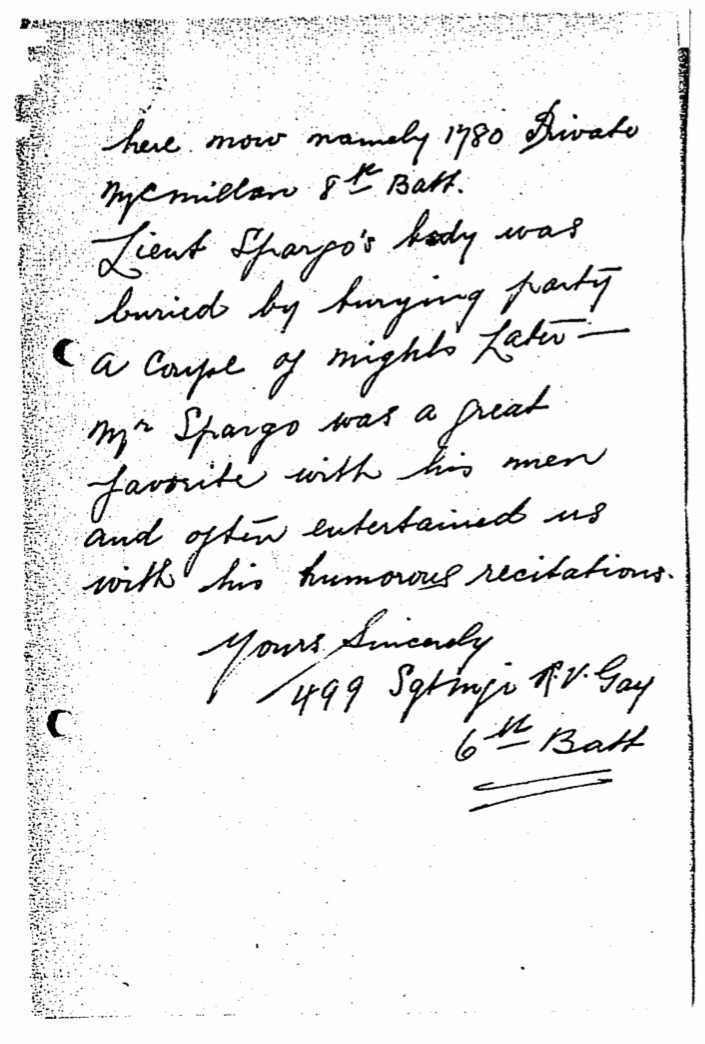 here now namely 1780 Private
McMillan 8th Batt.
Lieut Spargo's body was
buried by burying party
a couple of nights later —
Mr Spargo was a great
favorite with his men
and often entertained us
with his humorous recitations.
Yours Sincerely
499 Sgt Mjr R.V. Gay
6th Batt